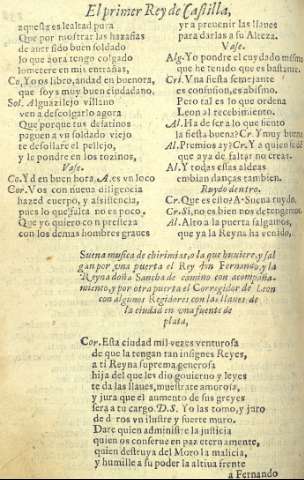 El primer Rey de Castilla,
aquesta es lealtad pura
Que por mostrar las hazañas
de auer sido buen soldado
lo que aora tengo colgado
lo metere en mis entrañas,
Co, Yo os libro, andad en buenora,
que soys muy buen ciudadano.
Sol. Alguazilejo villano
ven a descolgarlo agora
Que porque tus desatinos
paguen a vn soldado viejo
te desollare el pellejo,
y le pondre en los tozinos,
Vase.
Co. Yd en buen hora. A. es vn loco
Cor. Vos con nueua diligencia
hazed cuerpo, y assistencia,
pues lo que falta no es poco,
Que yo quiero con presteza
con los demas hombres graues
yr a preuenir las llaues
para darlas a su Alteza.
Vase.
Alg. Yo pondre el cuydado mismo
que he tenido que es bastante.
Cri. Vna fiesta semejante
es confusion, es abismo.
Pero tal es lo que ordena
Leon al recebimiento.
Al. Ha de ser a lo que siento
la fiesta buena? Cr. Y muy buena
Al. Premios ay? Cr. Y a quien
que aya de faltar no creas.
Al. Y todas essas aldeas
embian danças tambien.
Ruydo dentro.
Cr. Que es esso? A. Suena ruydo.
Cr. Si, no es bien nos detengamos
Al. Alto a la puerta salgamos,
que ya la Reyna ha venido,
Suena musica de chirimias, o la que huuiere, y sal
gan por vna puerta el Rey don Fernando, y la
Reyna doña Sancha de camino con acompaña-
miento, y por otra puerta el Corregidor de Leon
con algunos Regidores con las llaues de
la ciudad en vna fuente de
plata,
Cor. Esta ciudad mil vezes venturosa
de que la tengan tan insignes Reyes,
a ti Reyna suprema, generosa
hija del que les dio gouierno y leyes
te da las llaues, muestrate amorosa,
y jura que el aumento de sus greyes
sera a tu cargo D. S. Yo las tomo, y juro
de d ros vn ilustre y fuerte muro.
Dare quien administre la justicia
quien os conserue en paz eternamente,
quien destruya del Moro la malicia,
y humille a su poder la altiua frente
a Fernando